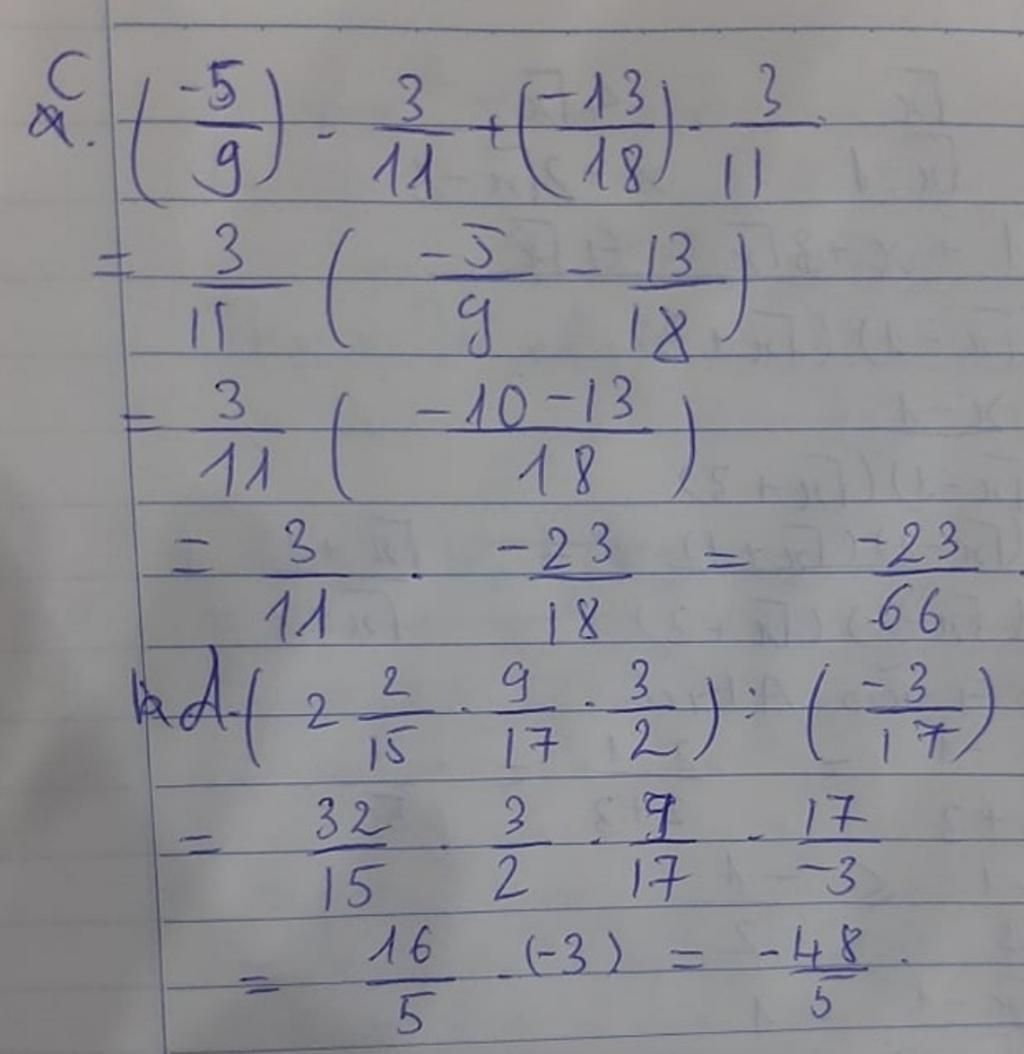 c. (-5/9) . 3/11 + (-13/18) . 3/11
= 3/11 ( -5/9 - 13/18 )
= 3/11 ( -10-13/18 )
= 3/11 . -23/18 = -23/66.
d. ( 2 2/15 . 9/17 . 3/2 ) : ( -3/17 )
= 32/15 . 3/2 . 9/17 . 17/-3
= 16/5 . (-3) = -48/5.